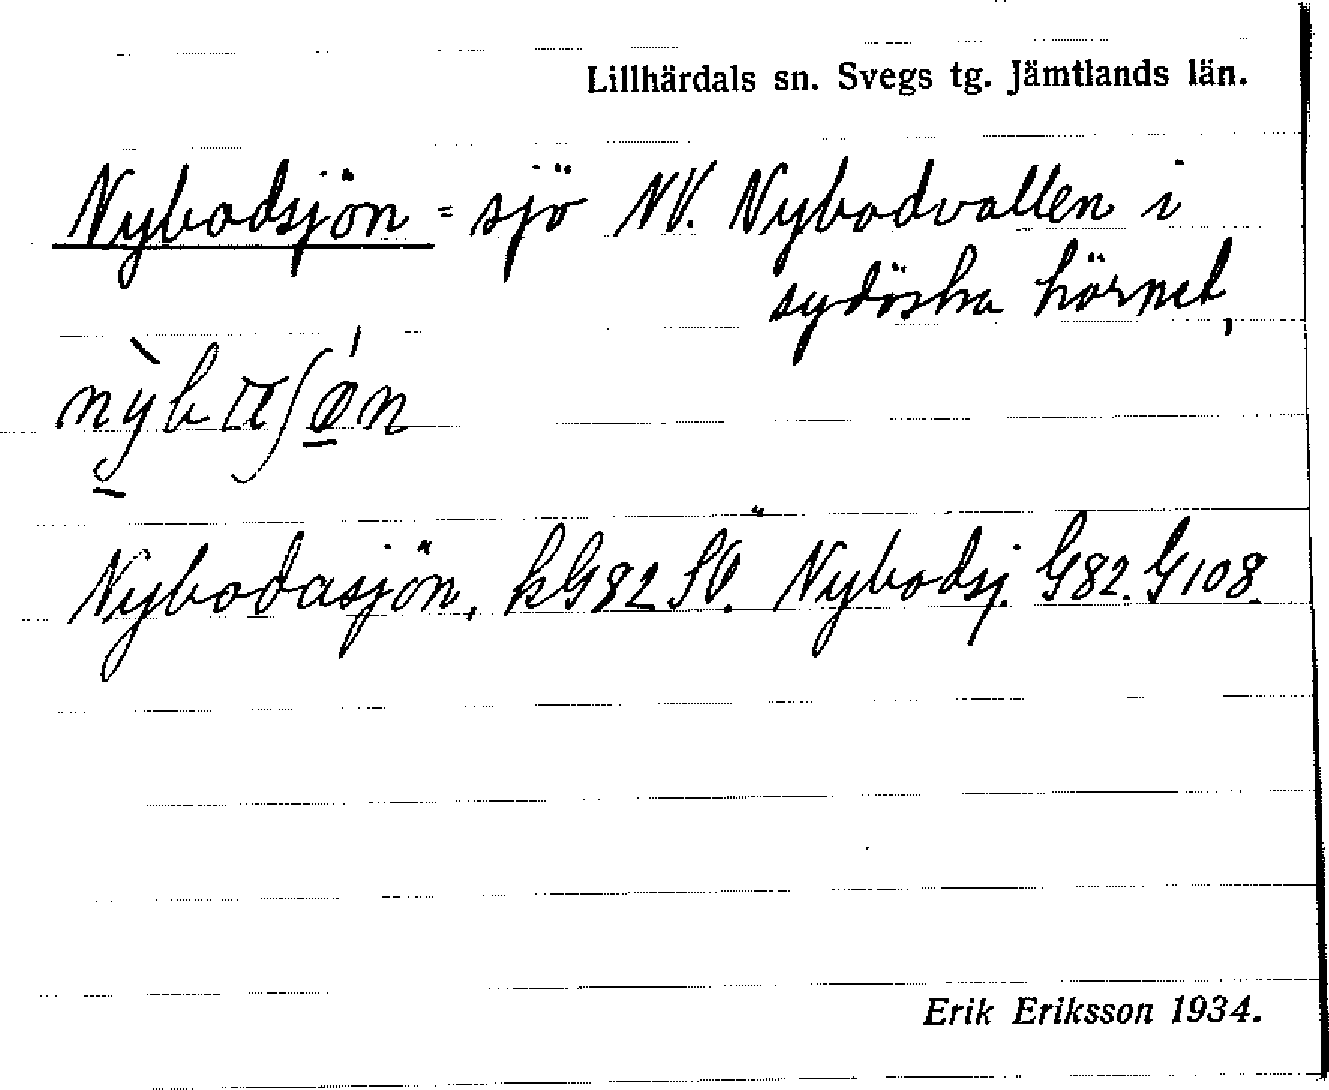 Lillhärdals sn. Svegs tg. Jämtlands län.
Nybodsjön = sjö NV. Nybodvallen i
sydöstra hörnet,
Nybodasjön, kG82 SÖ. Nybodsj. G82. G108.
Erik Eriksson 1934.